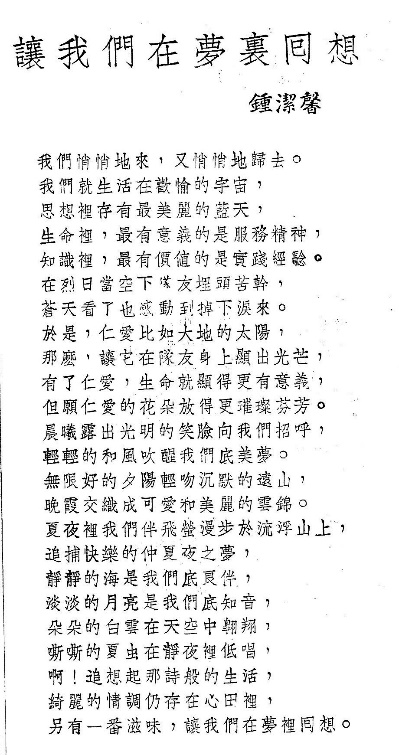 讓我們在夢裏囘想
鍾潔馨
我們悄悄地來，又悄悄地歸去。
我們就生活在歡愉的宇宙，
思想裡存有最美麗的藍天，
生命裡，最有意義的是服務精神，
知識裡，最有價值的是實踐經驗。
在烈日當空下隊友埋頭苦幹，
蒼天看了也感動到掉下淚來。
於是，仁愛比如大地的太陽，
那麽，讓它在隊友身上顯出光芒，
有了仁愛，生命就顯得更有意義，
但願仁愛的花朵放得更璀璨芬芳。
晨曦露出光明的笑臉向我們招呼，
輕輕的和風吹醒我們底美夢。
無限好的夕陽輕吻沉默的遠山，
晚霞交織成可愛和美麗的雲錦。
夏夜裡我們伴飛螢漫步於流浮山上，
追捕快樂的仲夏夜之夢，
靜靜的海是我們底良伴，
淡淡的月亮是我們底知音，
朵朵的白雲在天空中翱翔，
嘶嘶的夏虫在靜夜裡低唱，
啊！追想起那詩般的生活，
綺麗的情調仍存在心田裡，
另有一番滋味，讓我們在夢裡囘想。